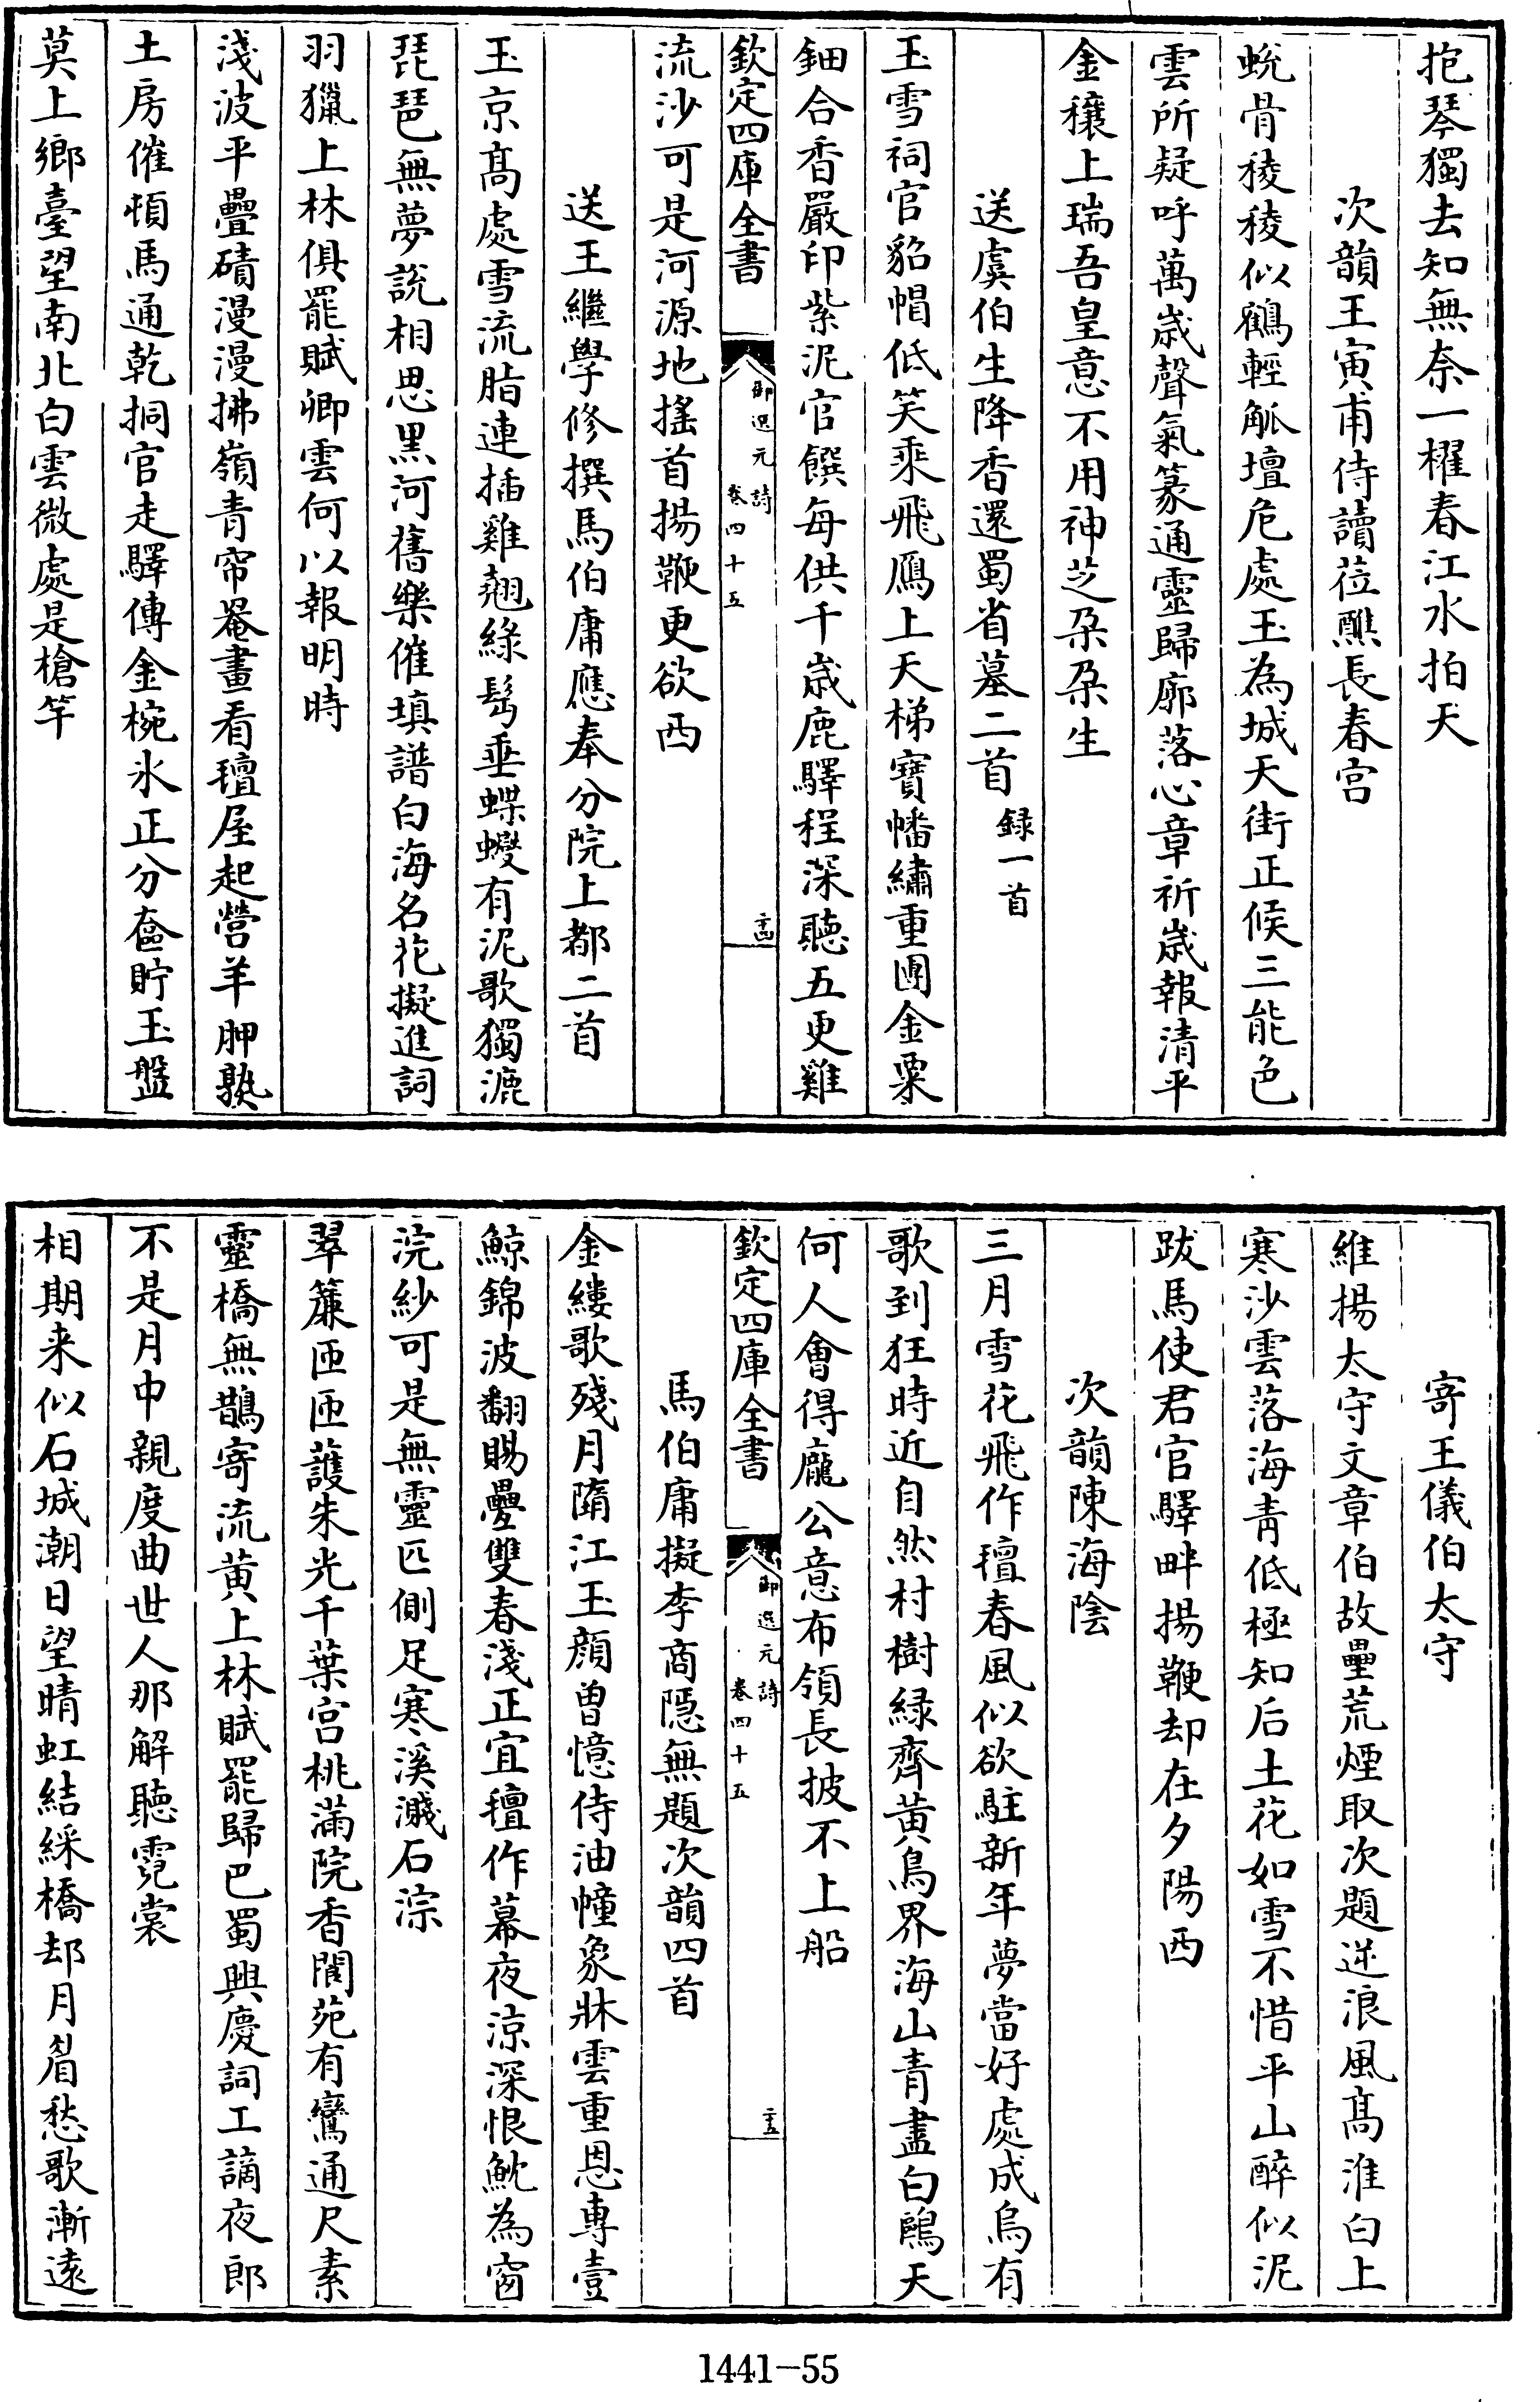 抱琴獨去知無奈一櫂春江水拍天
次韻王寅甫侍讀莅醮長春宫
蛻骨稜稜似鶴輕觚壇危處玉為城天街正候三能色
雲所疑呼萬歲聲氣篆通靈歸廓落心章祈歲報清平
金穰上瑞吾皇意不用神芝朶朶生
送虞伯生降香還蜀省墓二首録一首
玉雪祠官貂帽低笑乘飛鴈上天梯寶幡繡重團金粟
鈿合香嚴印紫泥官饌每供千歲鹿驛程深聽五更雞
欽定四庫全書 御選元詩 卷四十五 二十四
流沙可是河源地摇首揚鞭更欲西
送王繼學修撰馬伯庸應奉分院上都二首
玉京髙處雪流脂連插雞翹綠髣垂蝶蠳有泥歌獨漉
琵琶無夢說相思黒河舊樂催填譜白海名花擬進詞
羽獵上林俱罷賦卿雲何以報明時
淺波平疊磧漫漫拂嶺青帘菴畫看氊屋起營羊胛熟
土房催頓馬通乾挏官走驛傳金椀氷正分奩貯玉盤
莫上鄉臺望南北白雲微處是槍竿
寄王儀伯太守
維揚太守文章伯故壘荒煙取次題逆浪風髙淮白上
寒沙雲落海青低極知后土花如雪不惜平山醉似泥
跋馬使君官驛畔揚鞭却在夕陽西
次韻陳海陰
三月雪花飛作氊春風似欲駐新年夢當好處成烏有
歌到狂時近自然村樹緑齊黄鳥界海山青盡白鷗天
何人會得龎公意布領長披不上船
欽定四庫全書 御選元詩 卷四十五 二十五
馬伯庸擬李商隱無題次韻四首
金縷歌殘月隋江玉顔曽憶侍油幢象牀雲重恩專壹
鯨錦波翻賜疊雙春淺正宜氊作幕夜涼深恨魫為窗
浣紗可是無靈匹側足寒溪濺石淙
翠簾匝匝護朱光千葉宫桃滿院香閬苑有鸞通尺素
靈橋無鵲寄流黄上林賦罷歸巴蜀興慶詞工謫夜郎
不是月中親度曲世人那解聽霓裳
相期来似石城潮日望晴虹結綵橋却月眉愁歌漸遠
1441-55